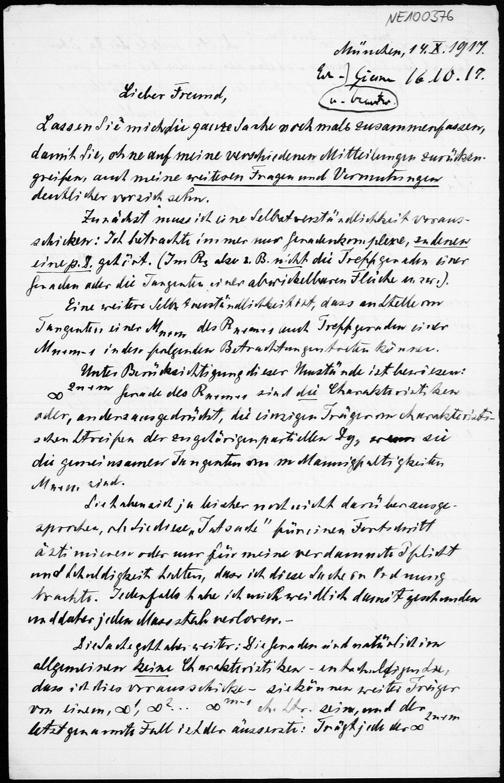 NE100376
München, 14.X.1917.
16.10.17.
Lieber Freund,
Lassen Sie mich die ganze Sache nochmals zusammenfassen,
damit Sie, ohne auf meine verschiedenen Mitteilungen zurückzu-
greifen, auch meine weiteren Fragen und Vermutungen
deutlicher vor sich sehn.
Zunächst muss ich eine Selbstverständlichkeit voraus-
schicken: Ich betrachte immer nur Geradenkomplexe, zu denen
eine p. D. gehört. (Im R3 also z. B. nicht die Treffgeraden einer
Geraden oder die Tangenten einer abwickelbaren Fläche usw.).
Eine weitere Selbstverständlichkeit ist, dass anstelle von
Tangenten einer M des R auch Treffgeraden einer
M in den folgenden Betrachtungen treten können.
Unter Berücksichtigung dieser Umstände ist bewiesen:
Gerade des R sind die Charakteristiken
oder, anders ausgedrückt, die einzigen Träger von charakteristi-
schen Streifen der zugehörigen partiellen Dg, wenn sie
die gemeinsamen Tangenten von m Mannigfaltigkeiten
M sind.
Sie haben sich ja bisher noch nicht darüber ausge-
sprochen, ob Sie diese „Tatsache" für einen Fortschritt
ästimieren oder nur für meine verdammte Pflicht
und Schuldigkeit halten, dass ich diese Sache in Ordnung
brachte. Jedenfalls habe ich mich weidlich damit geschunden
und daher jeden Massstab verloren. —
Die Sache geht aber weiter: Die Geraden sind natürlich im
allgemeinen keine Charakteristiken —
dass ich dies vorausschicke — sie können weiter Träger
von einem, ∞¹, ∞² ... ch. Str. sein, und der
letztgenannte Fall ist der äusserste: Trägt jede der